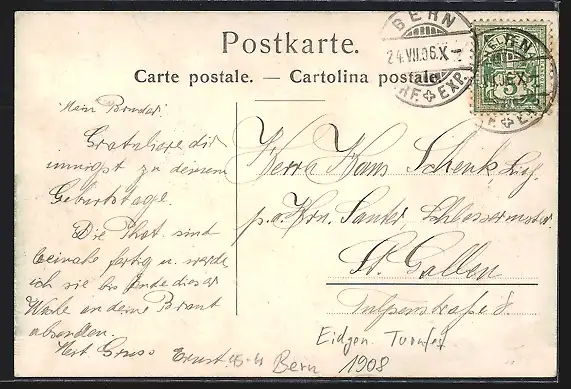 Postkarte.
Carte postale. — Cartolina postale.
BERN
24.VII.06.X
BRF. EXP.
5
Mein Bruder.
Gratuliere dir
innigst zu deinem
Geburtstage.
Die Phot. sind
beinahe fertig u. werde
ich sie bis Ende dieser
Woche an deine Braut
absenden.
Herzl Gruss Ernst.
Herrn Hans Schenk,
p. a. Hrn. Sauter, Schlossermstr.
St. Gallen
Eidgen. Turnfest
Bern 1908